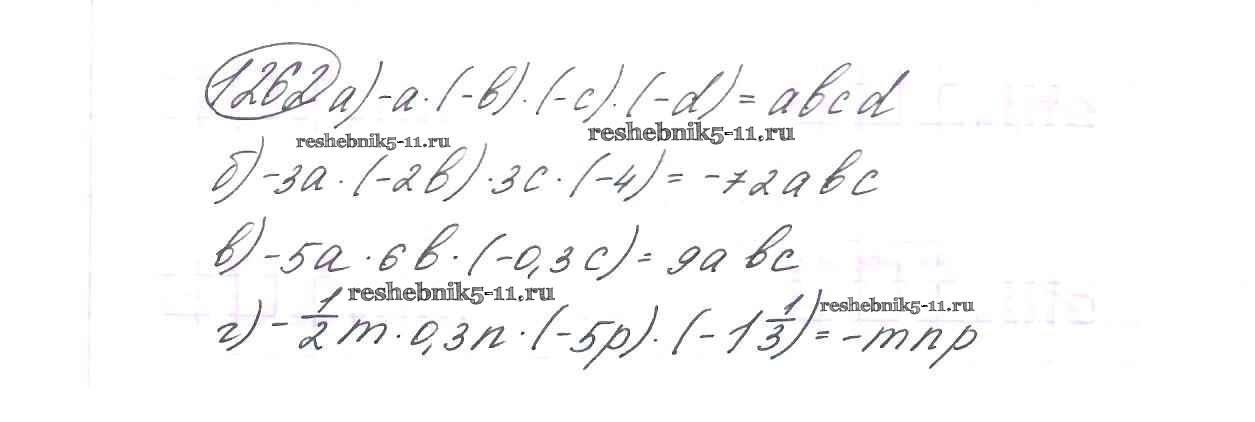 1262 а) -a · (-b) · (-c) · (-d) = abcd
reshebnik5-11.ru reshebnik5-11.ru
б) -3a · (-2b) · 3c · (-4) = -72abc
в) -5a · 6b · (-0,3c) = 9abc
reshebnik5-11.ru reshebnik5-11.ru
г) -1/2 m · 0,3n · (-5p) · (-1 1/3) = -mnp